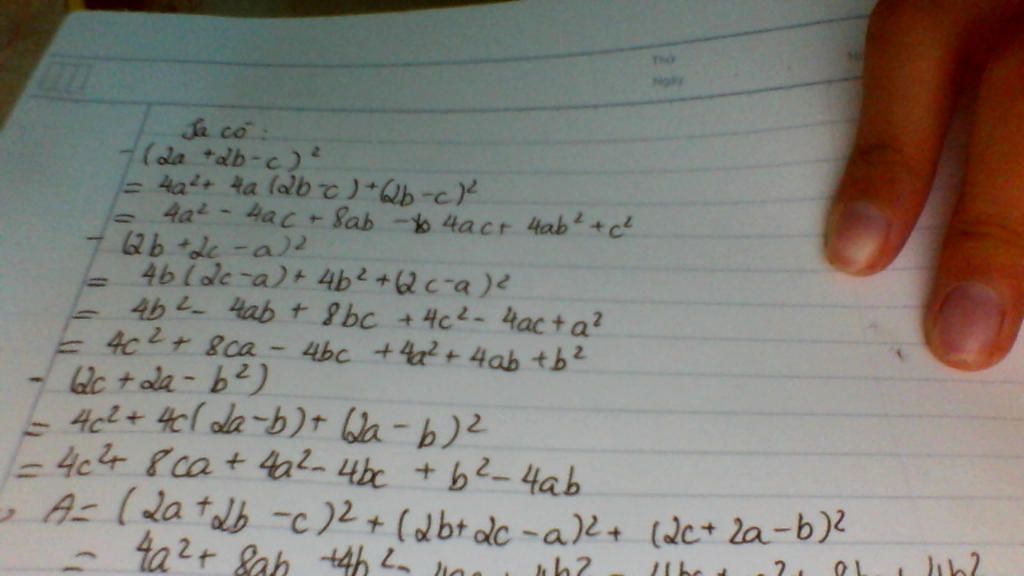 Thứ
Ngày
Ta có:
- (2a + 2b - c)²
= 4a² + 4a (2b - c) + (2b - c)²
= 4a² - 4ac + 8ab - 4ac + 4ab² + c²
- (2b + 2c - a)²
= 4b (2c - a) + 4b² + (2c - a)²
= 4b² - 4ab + 8bc + 4c² - 4ac + a²
= 4c² + 8ca - 4bc + 4a² + 4ab + b²
- (2c + 2a - b²)
= 4c² + 4c (2a - b) + (2a - b)²
= 4c² + 8ca + 4a² - 4bc + b² - 4ab
A = (2a + 2b - c)² + (2b + 2c - a)² + (2c + 2a - b)²
= 4a² + 8ab + 4b² -